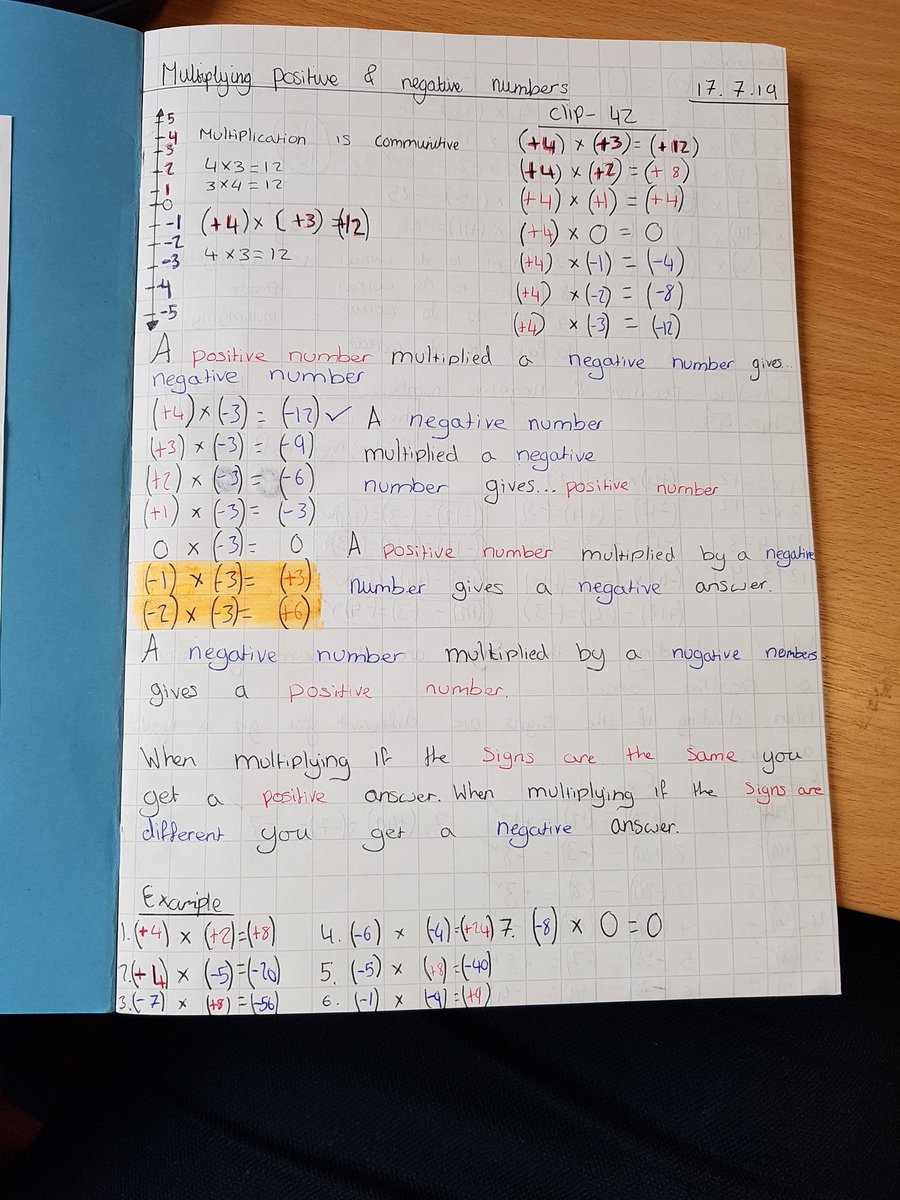 Multiplying positive & negative numbers 17.7.19
clip - 42
5
4
3
2
1
0
-1
-2
-3
-4
-5
Multiplication is communitive
4 x 3 = 12
3 x 4 = 12
(+4) x (+3) = (+12)
4 x 3 = 12
(+4) x (+3) = (+12)
(+4) x (+2) = (+8)
(+4) x (+1) = (+4)
(+4) x 0 = 0
(+4) x (-1) = (-4)
(+4) x (-2) = (-8)
(+4) x (-3) = (-12)
A positive number multiplied a negative number gives...
negative number
(+4) x (-3) = (-12) ✓
(+3) x (-3) = (-9)
(+2) x (-3) = (-6)
(+1) x (-3) = (-3)
0 x (-3) = 0
(-1) x (-3) = (+3)
(-2) x (-3) = (+6)
A negative number
multiplied a negative
number gives... positive number
A positive number multiplied by a negative
number gives a negative answer.
A negative number multiplied by a nugative nembers
gives a positive number.
When multiplying if the signs are the same you
get a positive answer. When multiplying if the signs are
different you get a negative answer.
Example
1. (+4) x (+2) = (+8)
2. (+4) x (-5) = (-20)
3. (-7) x (+8) = (-56)
4. (-6) x (-4) = (+24)
5. (-5) x (+8) = (-40)
6. (-1) x (-9) = (+9)
7. (-8) x 0 = 0